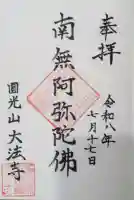 奉拝
令和八年
七月十七日
南無阿弥陀佛
圓光山大法寺